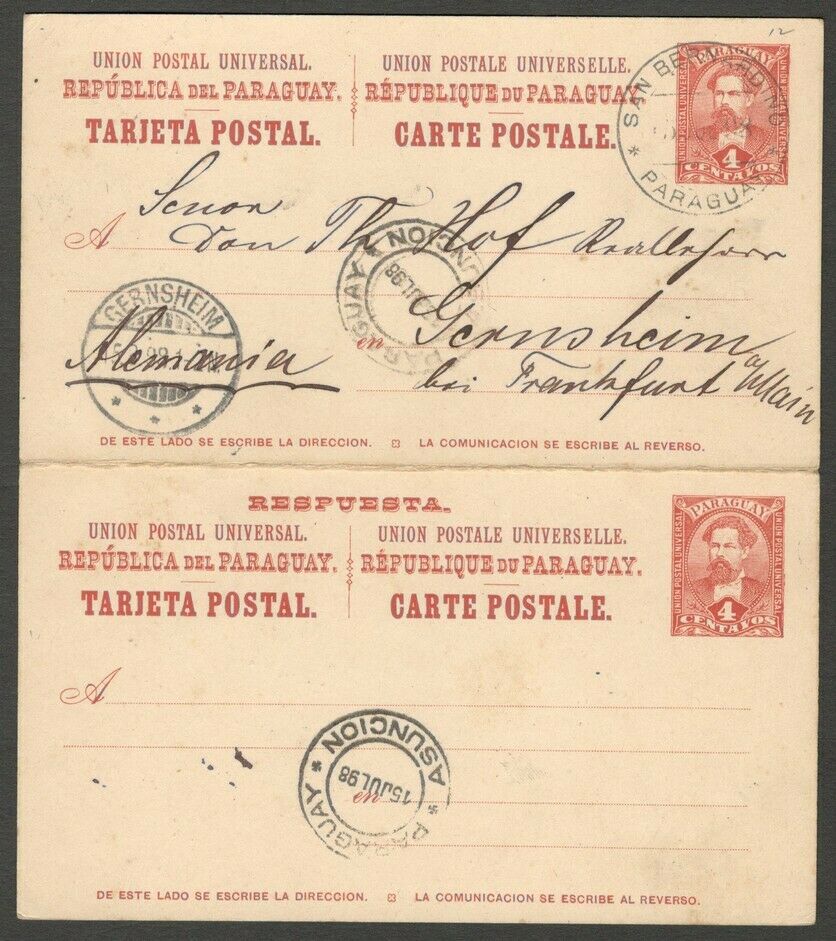 12
UNION POSTAL UNIVERSAL.
REPÚBLICA DEL PARAGUAY.
TARJETA POSTAL.
UNION POSTALE UNIVERSELLE.
RÉPUBLIQUE DU PARAGUAY.
CARTE POSTALE.
PARAGUAY
UNION POSTAL UNIVERSAL
UNION POSTAL UNIVERSAL
4
CENTAVOS
SAN BERNARDINO
* PARAGUAY *
Senor
A Don Th. Hof
en Gernsheim
Alemania
bei Frankfurt a/Main
ASUNCION * PARAGUAY
JUL 98
GERNSHEIM
* * *
DE ESTE LADO SE ESCRIBE LA DIRECCION. LA COMUNICACION SE ESCRIBE AL REVERSO.
RESPUESTA.
UNION POSTAL UNIVERSAL.
REPÚBLICA DEL PARAGUAY.
TARJETA POSTAL.
UNION POSTALE UNIVERSELLE.
RÉPUBLIQUE DU PARAGUAY.
CARTE POSTALE.
PARAGUAY
UNION POSTAL UNIVERSAL
UNION POSTAL UNIVERSAL
4
CENTAVOS
A
en
ASUNCION * PARAGUAY *
15 JUL 98
DE ESTE LADO SE ESCRIBE LA DIRECCION. LA COMUNICACION SE ESCRIBE AL REVERSO.